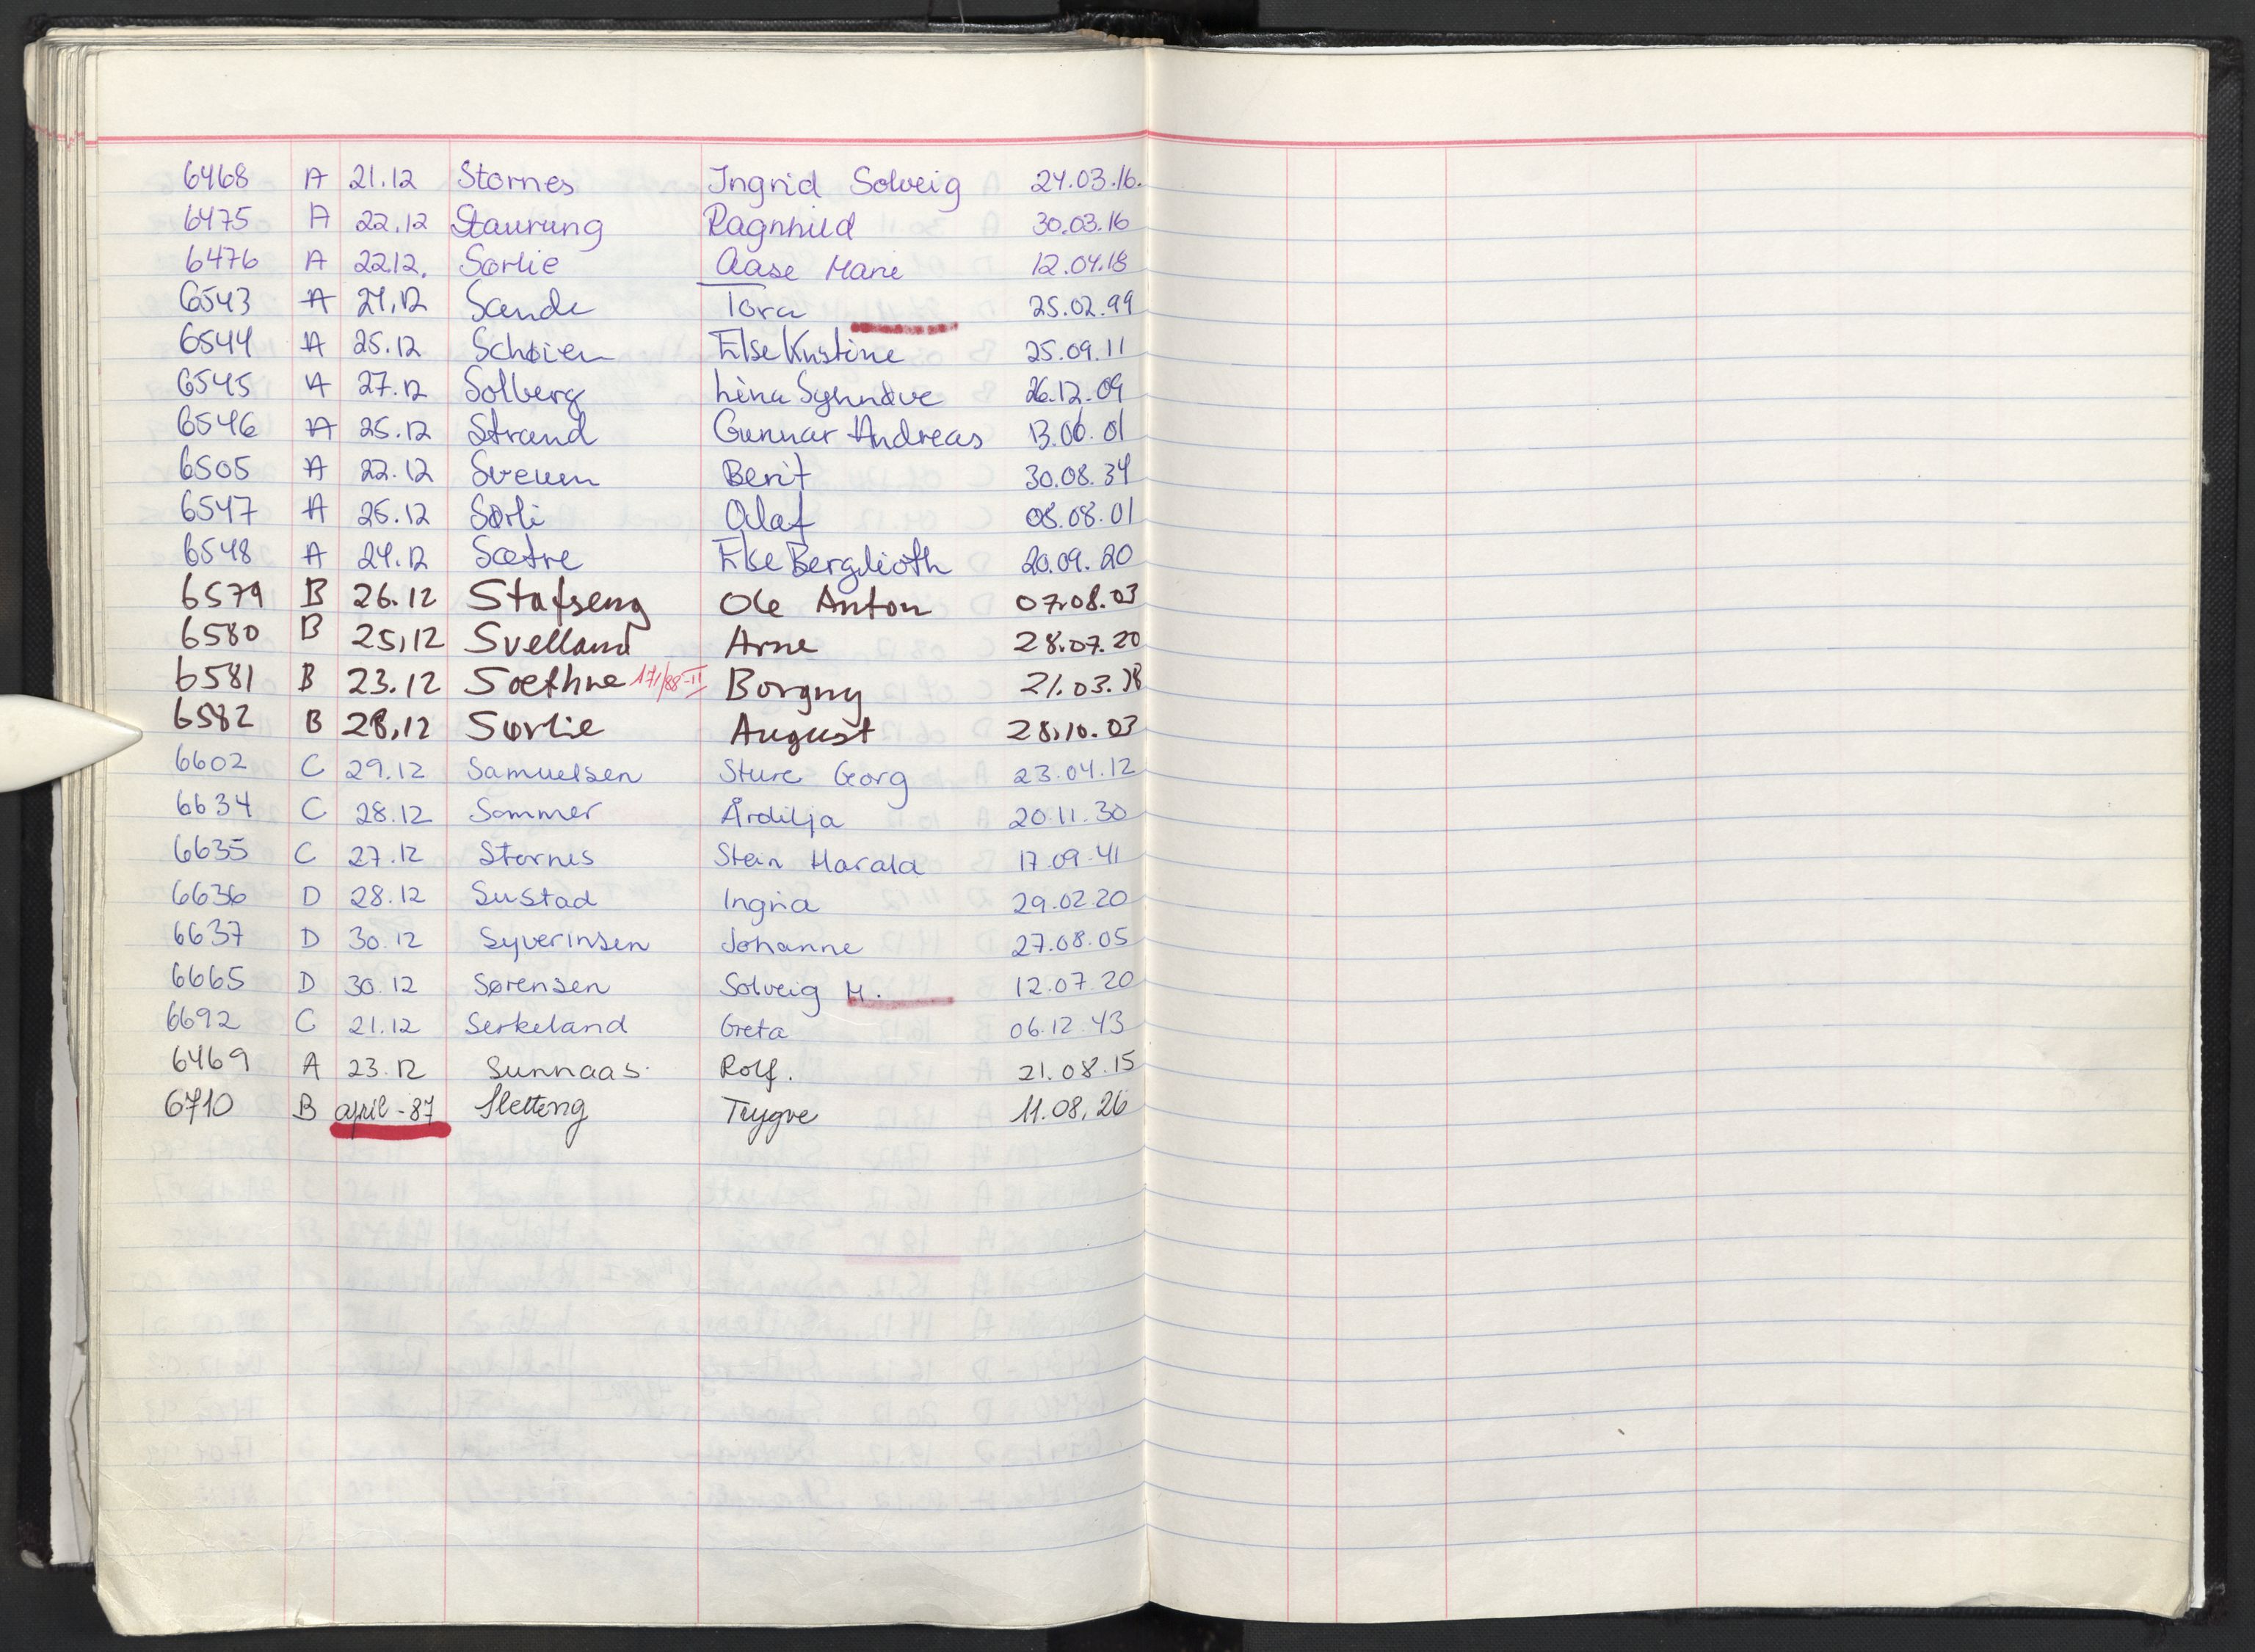 6468 A 21.12 Stornes Ingrid Solveig 24.03.16.
6475 A 22.12 Staurung Ragnhild 30.03.16
6476 A 22.12. Sørlie Aase Marie 12.04.18
6543 A 24.12 Sande Tora 25.02.99
6544 A 25.12 Schøien Else Kristine 25.09.11
6545 A 27.12 Solberg Lina Synnøve 26.12.09
6546 A 25.12 Strand Gunnar Andreas 13.06.01
6505 A 22.12 Sveum Berit 30.08.34
6547 A 25.12 Sørli Olaf 08.08.01
6548 A 24.12 Sætre Else Berglioth 20.09.20
6579 B 26.12 Stafseng Ole Anton 07.08.03
6580 B 25,12 Svelland Arne 28.07.20
6581 B 23.12 Soethne 171/88-II Borgny 21.03.
6582 B 28,12 Sørlie August 28,10.03
6602 C 29.12 Samuelsen Sture Georg 23.04.12
6634 C 28.12 Sommer Årdilja 20.11.30
6635 C 27.12 Stornes Stein Harald 17.09.41
6636 D 28.12 Sustad Ingrid 29.02.20
6637 D 30.12 Syverinsen Johanne 27.08.05
6665 D 30.12 Sørensen Solveig M. 12.07.20
6692 C 21.12 Serkeland Greta 06.12.43
6469 A 23.12 Sunnaas. Rolf. 21.08.15
6710 B april-87 Sletteng Trygve 11.08,26